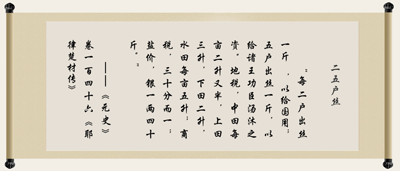 二五户丝
“每二户出丝
一斤，以给国用；
五户出丝一斤，以
给诸王功臣汤沐之
资。地税，中田每
亩二升又半，上田
三升，下田二升，
水田每亩五升；商
税，三十分而一；
盐价，银一两四十
斤。”
——《元史》
卷一百四十六《耶
律楚材传》